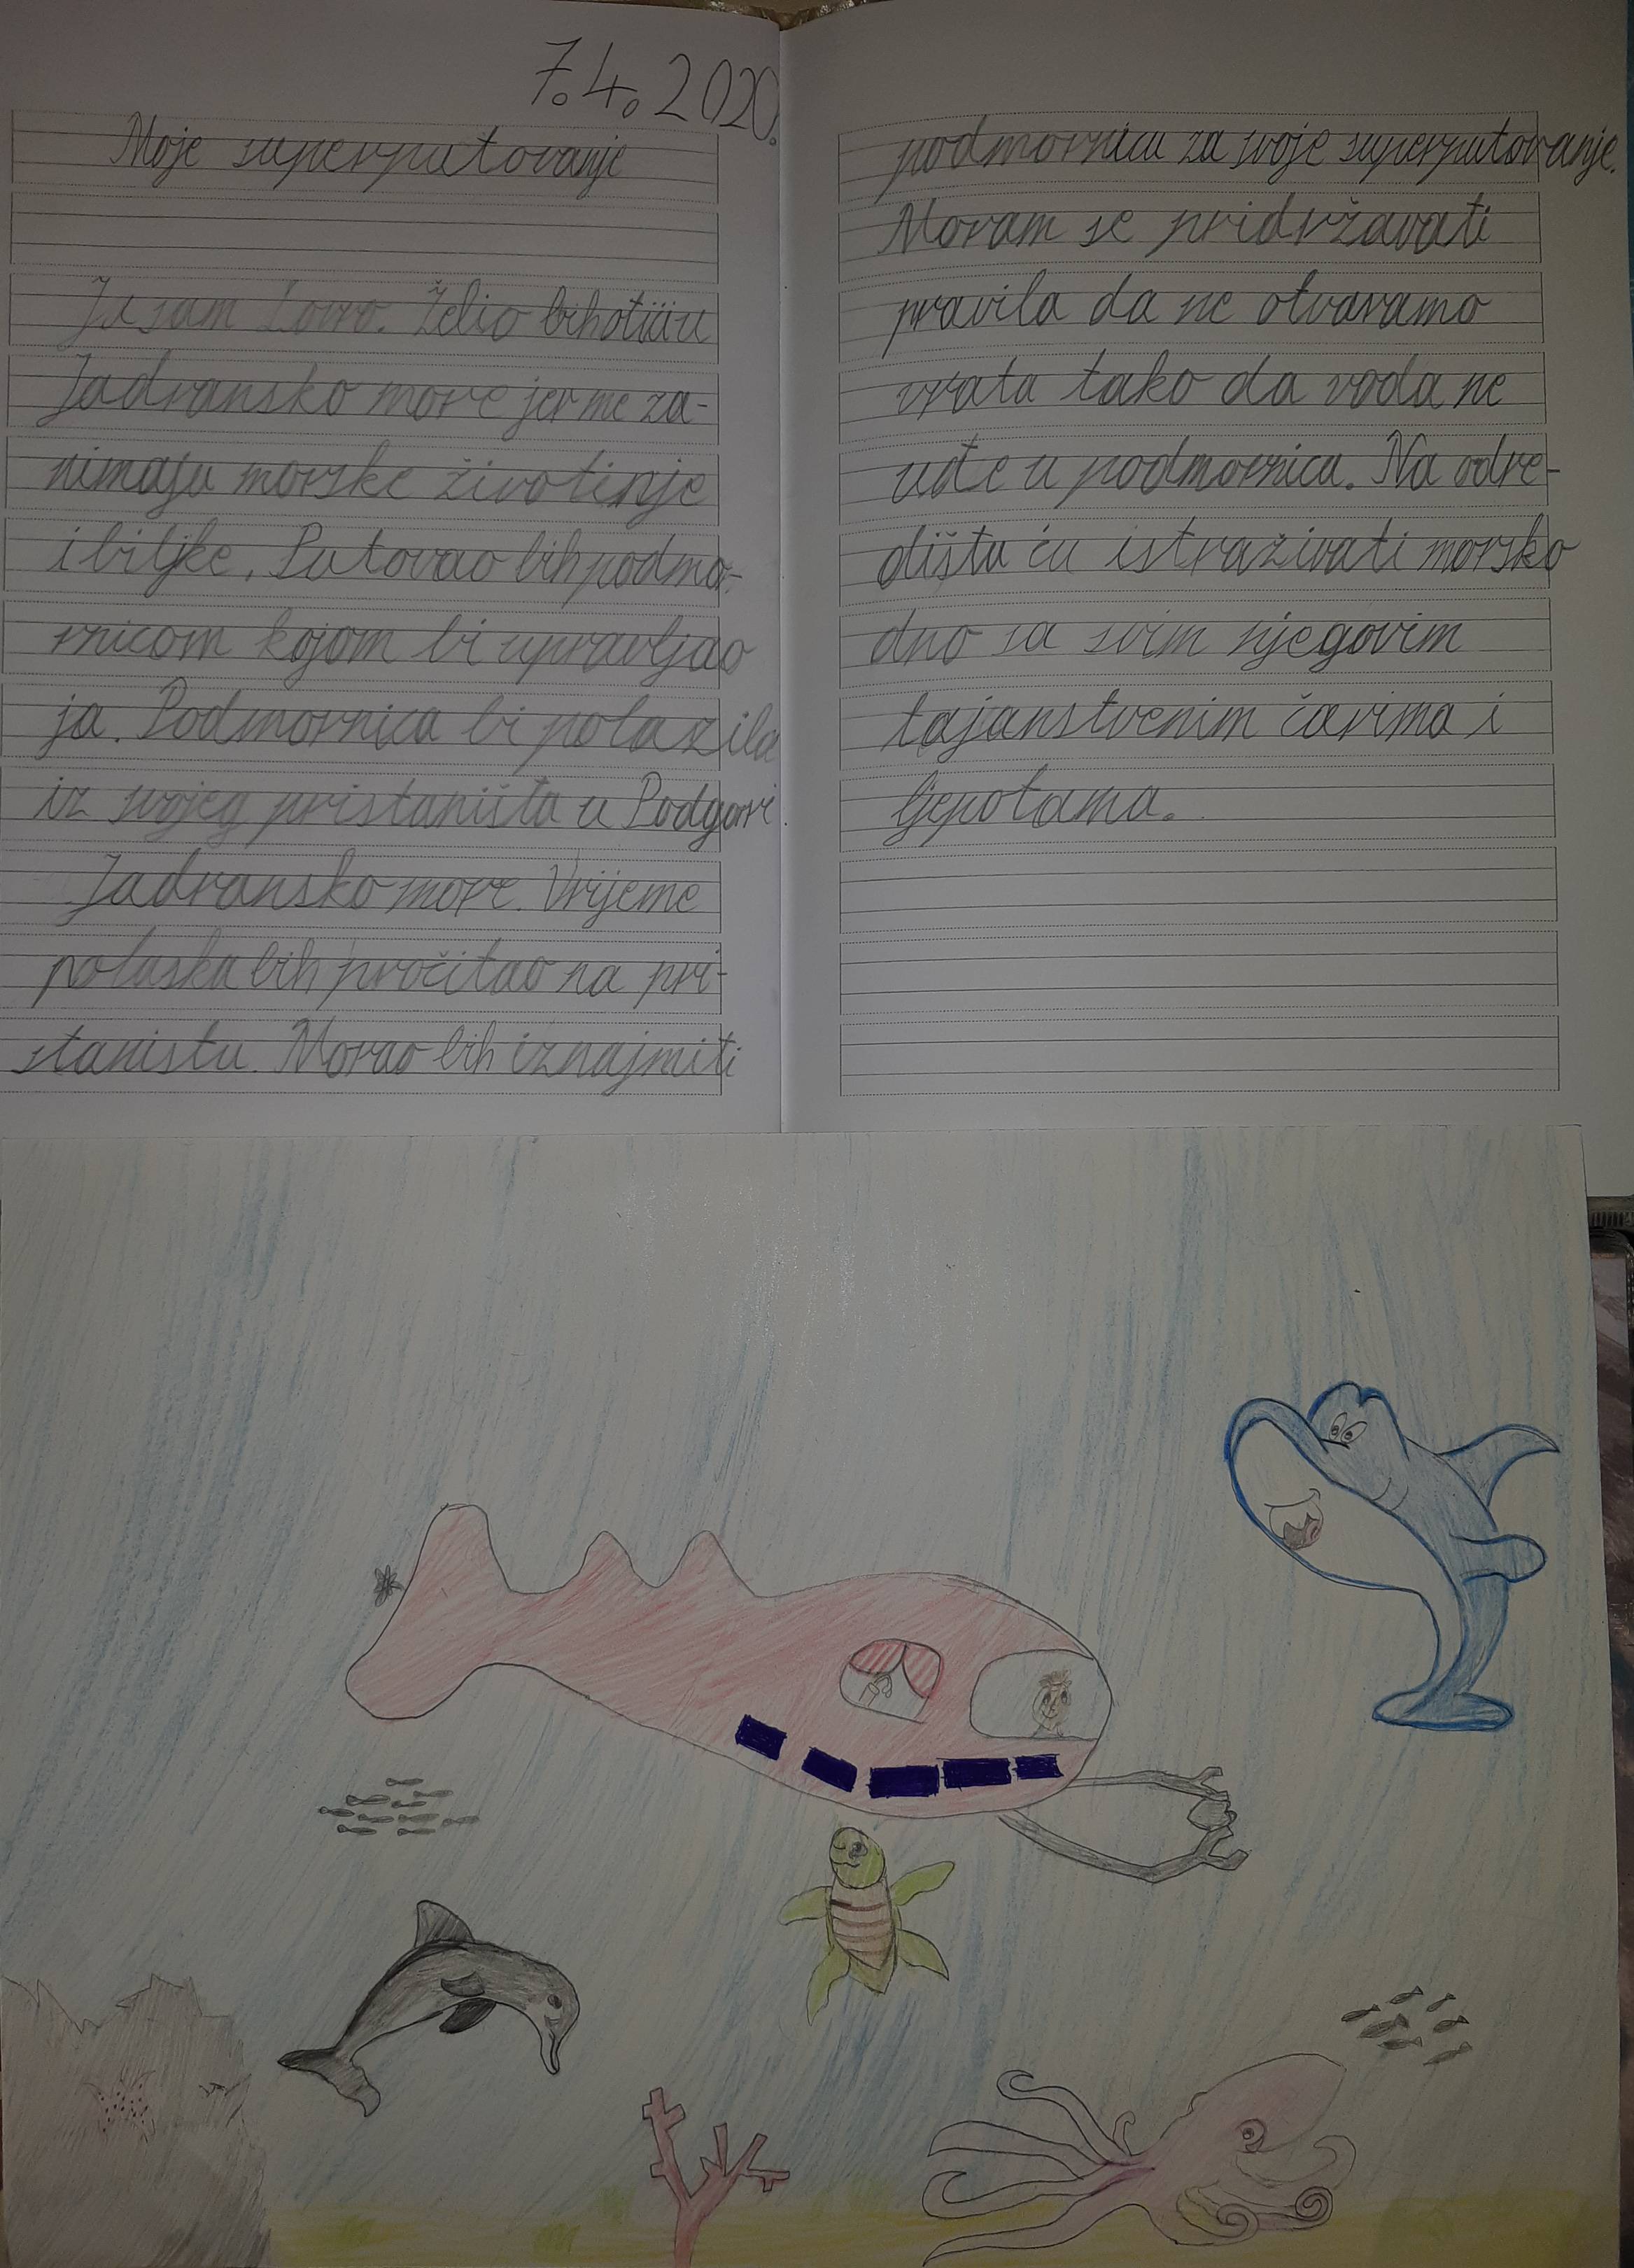 7.4.2020.
Moje superputovanje
Ja sam Lovro. Želio bih otići u
Jadransko more jer me za-
nimaju morske životinje
i biljke. Putovao bih podmo-
rnicom kojom bi upravljao
ja. Podmornica bi polazila
iz svojeg pristaništa u Podgori.
Jadransko more. Vrijeme
polaska bih pročitao na pri-
stanistu. Morao bih iznajmiti
podmornicu za svoje superputovanje.
Moram se pridržavati
pravila da ne otvaramo
vrata tako da voda ne
uđe u podmornicu. Na odre-
dištu ću istraživati morsko
dno sa svim njegovim
tajanstvenim čarima i
ljepotama.